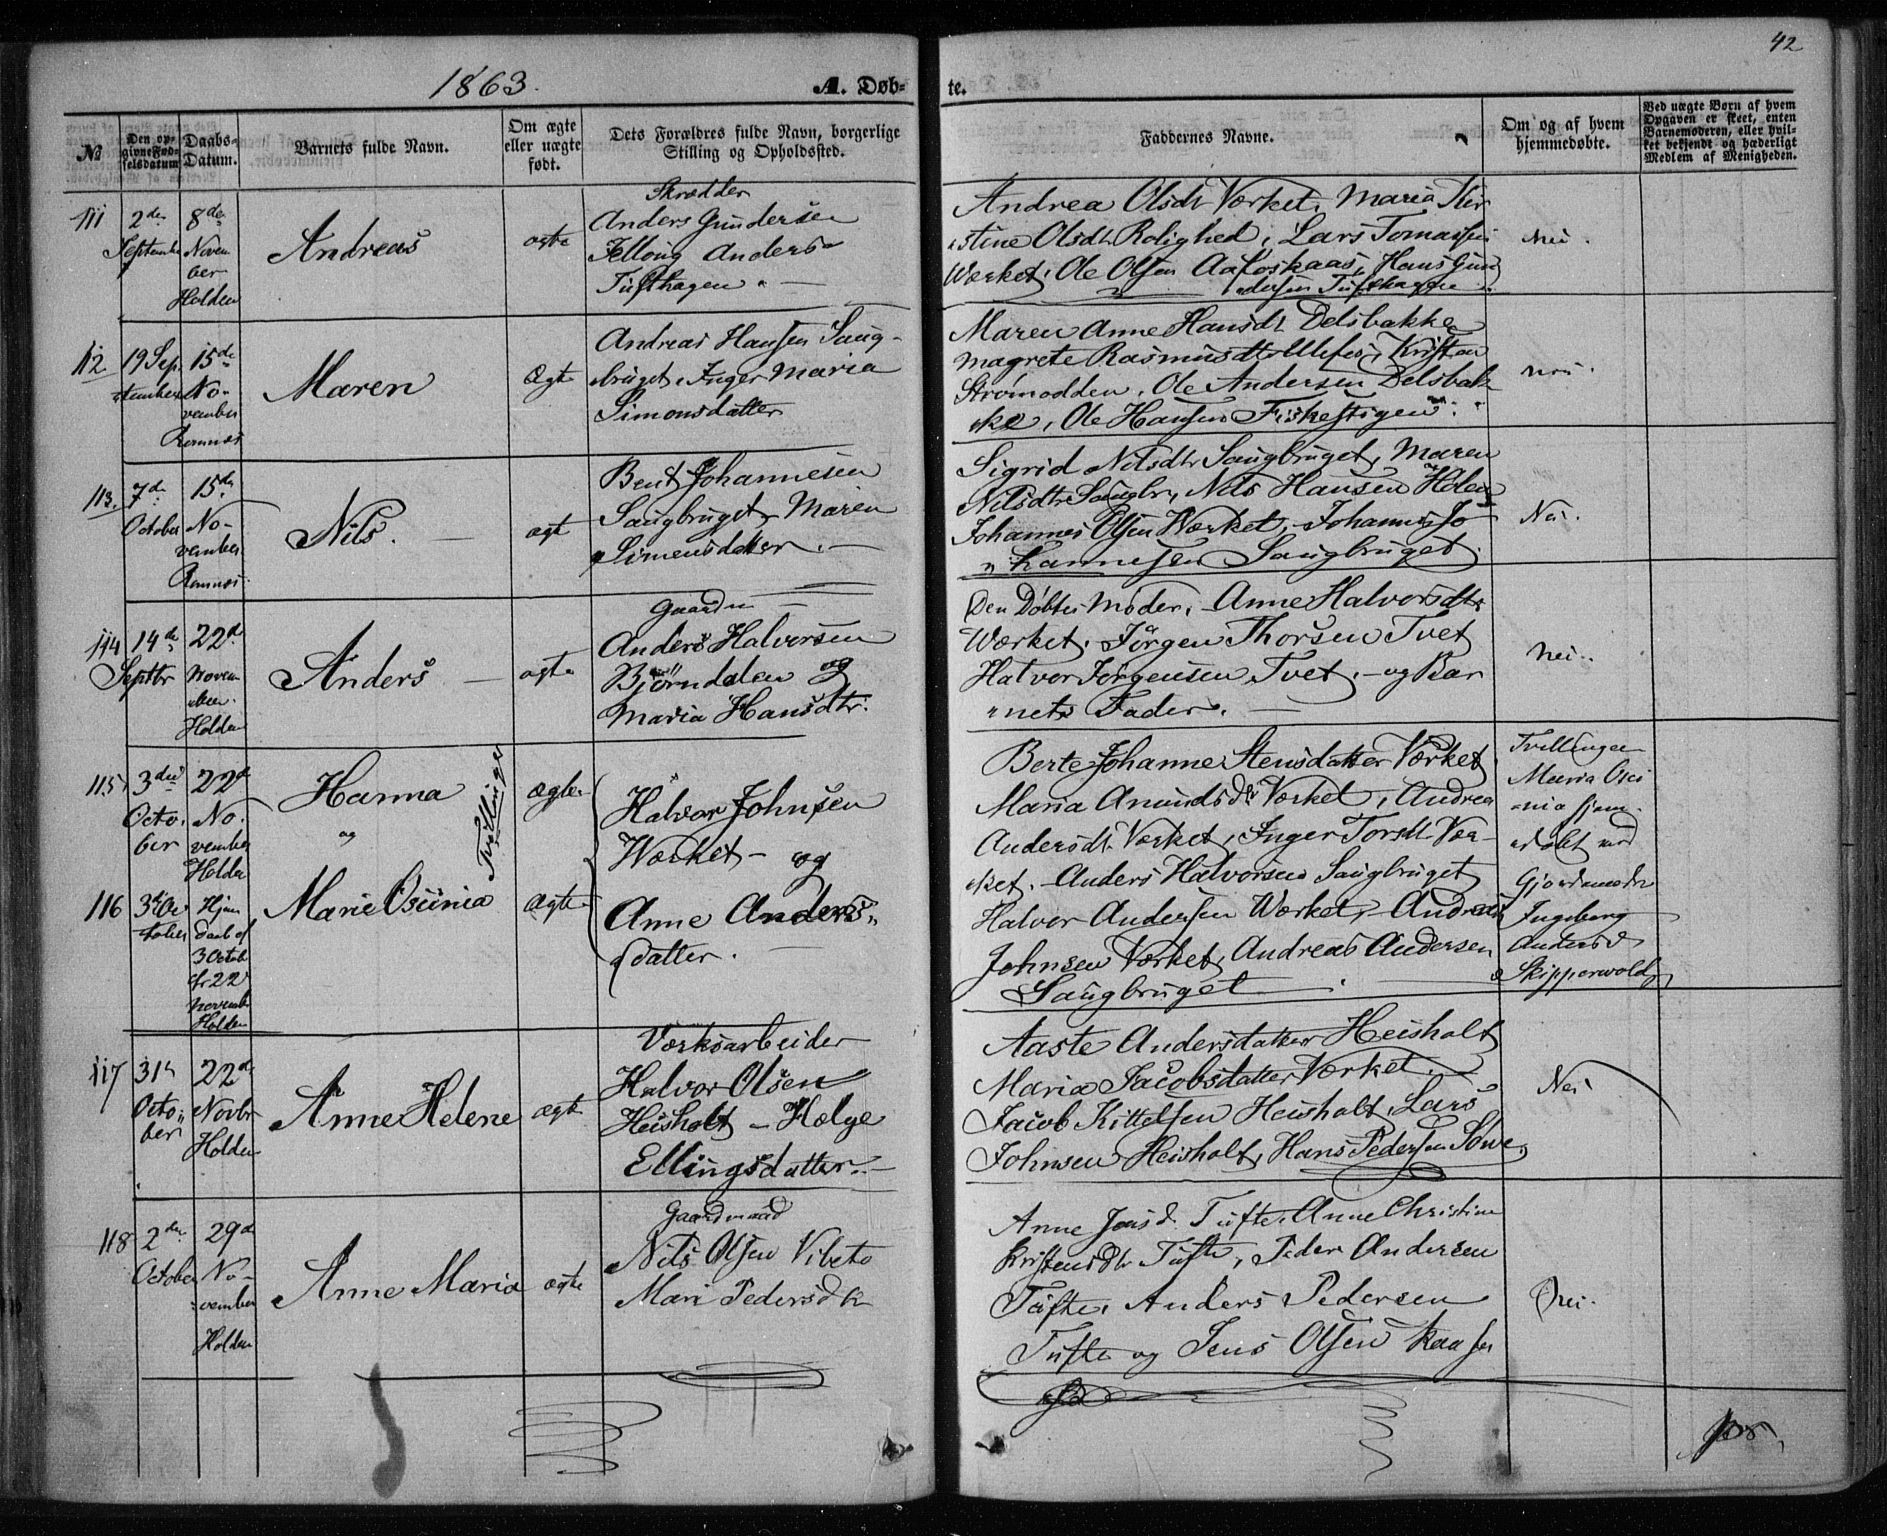 42
1863.
A. Døbte.
No
Den opgivne Fødselsdatum
Daabs-Datum.
Barnets fulde Navn.
Om ægte eller uægte født.
Dets Forældres fulde Navn, borgerlige Stilling og Opholdssted.
Faddernes Navne.
Om og af hvem hjemmedøbte.
Ved uægte Børn af hvem Opgaven er skeet, enten Barnemoderen, eller hvilket bekjendt og hæderligt Medlem af Menigheden.
111
2den
Septembr
8de
Novem
ber
Holden
Andreas
ægte
Skrædder
Anders Gundersen
Anders
Tufthagen
Andrea Olsdt Værket, Maria Kir
stine Olsdt Rolighed, Lars Tomassen
Værket, Ole Olsen Aafoskaas, Hans Gun
dersen Tufthagen
nei.
112
19 Sep
tember
15de
No-
vember
Romnæs
Maren
Ægte
Andreas Hansen Saug-
bruget, Inger Maria
Simonsdatter
Maren Anne Hansdt Delsbakke
Magrete Rasmusdt Ulefos, Kristen
Strømodden, Ole Andersen Delsbak
ke, Ole Hansen Fiskestigen
nei.
113.
7d
October
15de
No-
vember
Romnæs
Nils.
ægt
Bent Johannesen
Saugbruget, Maren
Simensdatter.
Sigrid Nilsdtr Saugbruget, Maren
Nilsdtr Saugbr, Nils Hansen Holen
Johannes Olsen Værket, Johannes Jo
hannesen Saugbruget.
Nei.
114
14de
Septbr
22d
Novem
ber.
Holden
Anders
ægte
Gaardm
Anders Halvorsen
Bjørndalen og
Maria Hansdtr.
Den Døbtes Moder, Anne Halvorsdtr
Værket, Jørgen Thorsen Tvet
Halvor Jørgensen Tvet, og Bar
nets Fader.
nei.
115
3die
Octo.
ber
22d
No.
vember
Holden
Hanna
og
Tvillinger
ægte
Halvor Johnsen
Værket - og
Anne Anders,
datter.
Berte Johanne Stensdatter Værket
Maria Amundsdr Værket, Andrea
Andersdt Værket, Inger Torsdt Vær-
ket. Anders Halvorsen Saugbruget
Halvor Andersen Værket, Andreas
Johnsen Værket, Andreas Andersen
Saugbruget
Tvillingen
Maria Osi
nia hjem.
døbt ved
Gjordemoder
Ingeborg
Andersd
Skippervold
116
3die Oc
tober
Hjem
daab
3 Octob
22
Novemb
Holden
Marie Osinia
Ægte
117
31te
Octo
ber
22d
Novbr
Holden
Anne Helene
ægte
Værksarbeider
Halvor Olsen
Heisholt - Hælge
Ellingsdatter.
Aaste Andersdatter Heisholt
Maria Jacobsdatter Værket.
Jacob Kittelsen Heisholt, Lars
Johnsen Heisholt, Hans Pedersen Sowe
Nei
118
2den
October
29d
No-
vember
Holden
Anne Maria
ægte
Gaardmand
Nils Olsen Vibeto
Mari Pedersdtr
Anne Jensd. Tufte, Anne Christine
Kristensdtr Tufte, Peder Andersen
Tufte, Anders Pedersen
Tufte og Jens Olsen Kaasen
nei.